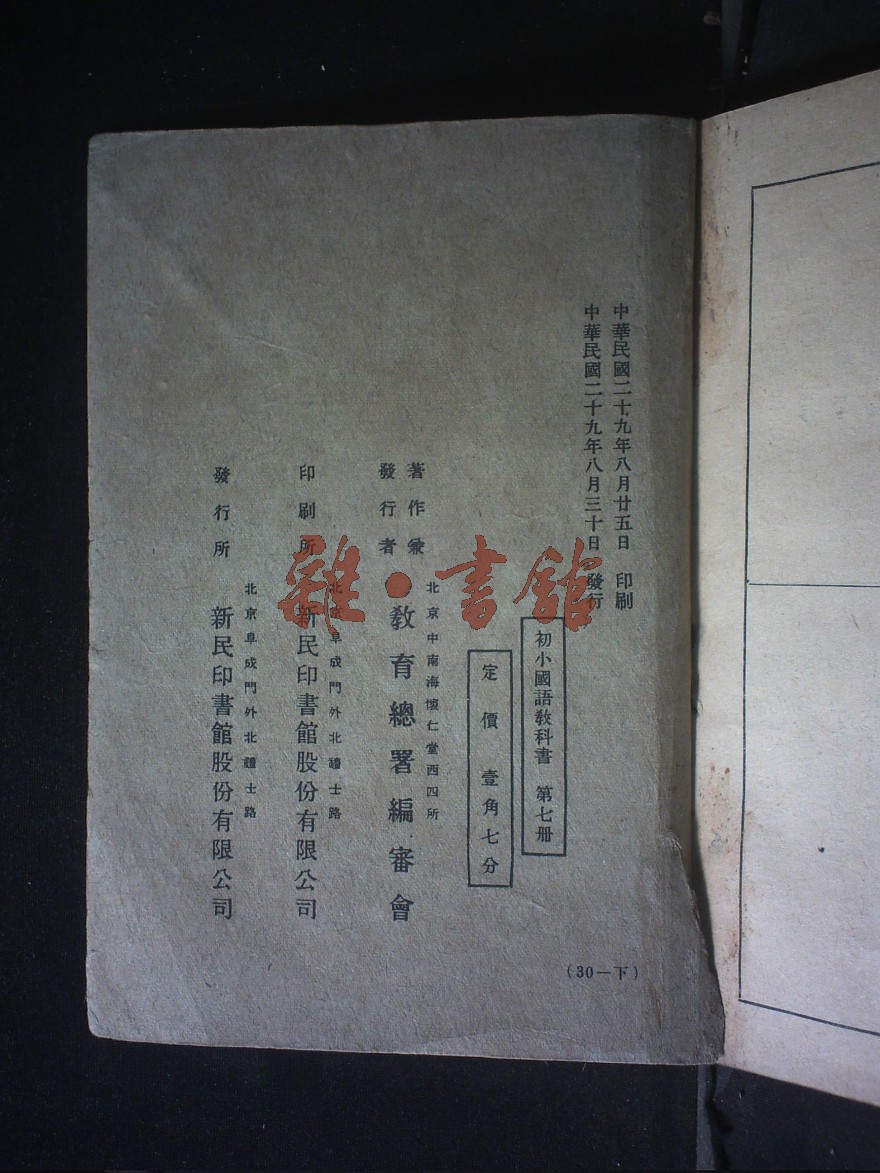 中華民國二十九年八月廿五日 印刷
中華民國二十九年八月三十日 發行
初小國語教科書 第七册
定價 壹角七分
著作兼
發行者
北京中南海懷仁堂西四所
教育總署編審會
印刷所
北京阜成門外北禮士路
新民印書館股份有限公司
發行所
北京阜成門外北禮士路
新民印書館股份有限公司
(30—下)
雜·書館